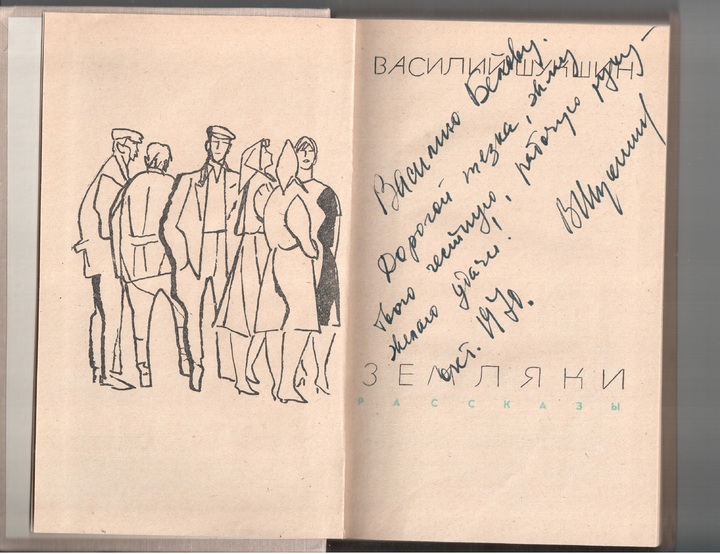 ВАСИЛИЙ ШУКШИН
Василию Белову.
Дорогой тезка,
твою честную, рабочую
желаю удачи!
окт. 1970.
ВШукшин
ЗЕМЛЯКИ
РАССКАЗЫ